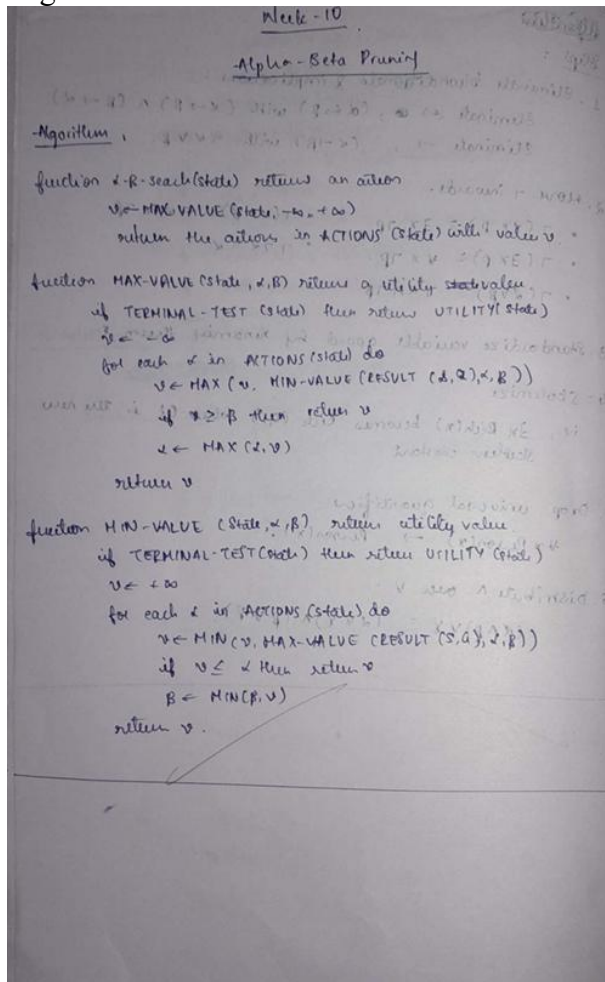 Week - 10
Alpha-Beta Pruning
Algorithm
function α-β-seach(state) returns an action
v ← MAX VALUE (state, -∞, +∞)
return the actions in ACTIONS (state) with value v
function MAX-VALUE (state, α, β) returns a utility value
if TERMINAL-TEST (state) then return UTILITY (state)
v ← -∞
for each α in ACTIONS (state) do
v ← MAX (v, MIN-VALUE (RESULT (s, a), α, β))
if v ≥ β then return v
α ← MAX (α, v)
return v
function MIN-VALUE (state, α, β) returns utility value
if TERMINAL-TEST (state) then return UTILITY (state)
v ← +∞
for each α in ACTIONS (state) do
v ← MIN (v, MAX-VALUE (RESULT (s, a), α, β))
if v ≤ α then return v
β ← MIN (β, v)
return v.